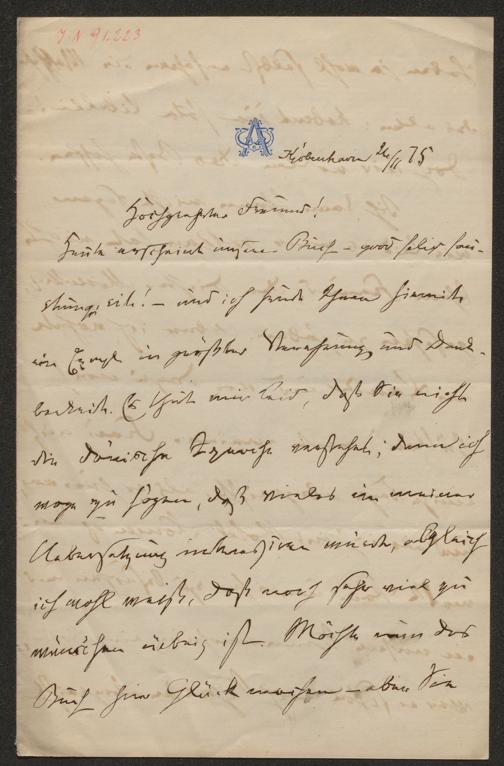 J.N 91.223
Kjöbenhavn 26/11 75
Hochgeehrter Freund!
Heute erscheint unser Buch – quod felix fau-
stumq. sit! – und ich sende Ihnen hiermit
ein Exempl. in größter Verehrung und Dank-
barkeit. Es thut mir leid, daß Sie nicht
die dänische Sprache verstehen; denn ich
wage zu sagen, daß vieles in meiner
Uebersetzung interessiren würde, obgleich
ich wohl weiß, daß noch sehr viel zu
wünschen übrig ist. Möchte nun das
Buch hier Glück machen – aber Sie